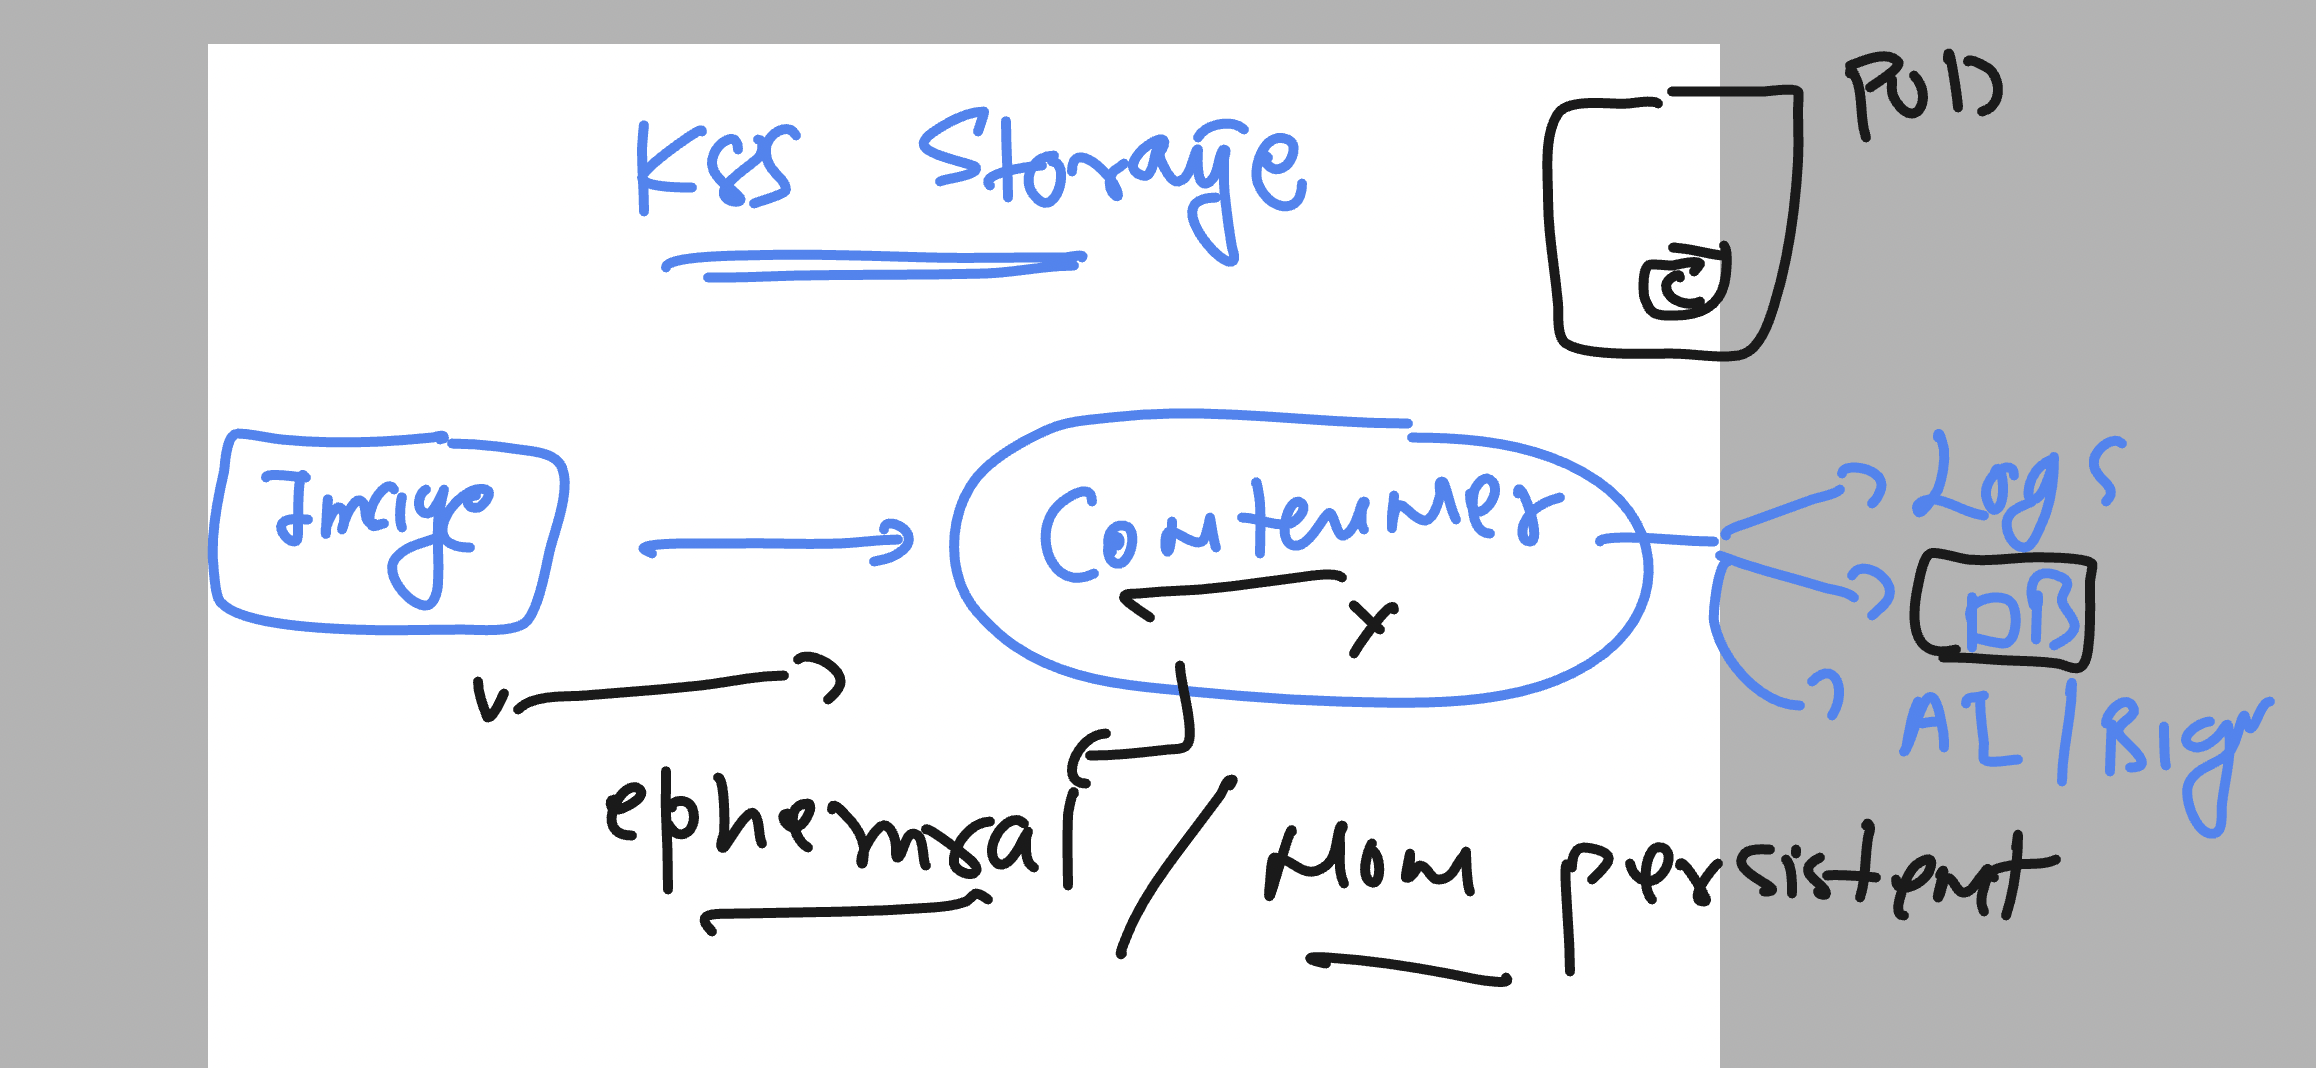 K8S Storage
POD
C
Image
Container
Logs
DB
AI / Big
ephemral / Non persistent